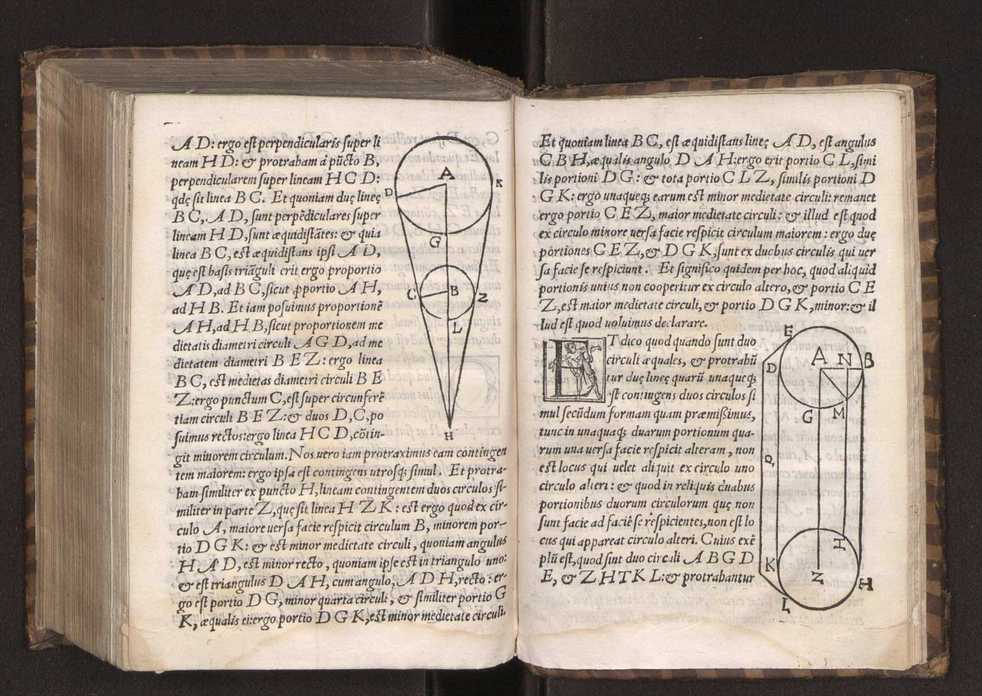 A D: ergo est perpendicularis super li
neam H D: & protrabam á pũcto B,
perpendicularem super lineam H C D:
qdę sit linea B C. Et quoniam duę lineę
B C, A D, sunt perpẽdiculares super
lineam H D, sunt æquidistãtes: & quia
linea B C, est æquidistans ipsi A D,
quę est basis triãguli erit ergo proportio
A D, ad B C, sicut ꝓportio A H,
ad H B. Et iam posuimus proportionẽ
A H, ad H B, sicut proportionem me
dietatis diametri circuli A G D, ad me
dietatem diametri B E Z: ergo linea
B C, est medietas diametri circuli B E
Z: ergo punctum C, est super circunferẽ
tiam circuli B E Z: & duos D, C, po
suimus rectos: ergo linea H C D, cõtin-
git minorem circulum. Nos vero iam protraximus eam contingen
tem maiorem: ergo ipsa est contingens utrosq; simul. Et protra-
bam similiter ex puncto H, lineam contingentem duos circulos si-
militer in parte Z, quę sit linea H Z K: est ergo quod ex cir-
culo A, maiore uersa facie respicit circulum B, minorem por-
tio D G K: & est minor medietate circuli, quoniam angulus
H A D, est minor recto, quoniam ipse est in triangulo uno:
& est triangulus D A H, cum angulo, A D H, recto: er-
go est portio D G, minor quarta circuli, & similiter portio G
K, æqualis ei: ergo portio D G K, est minor medietate circuli.
A
D
K
G
C
B
Z
L
H
Et quoniam linea B C, est æquidistans lineę A D, est angulus
C B H, æqualis angulo D A H: ergo erit portio C L, simi
lis portioni D G: & tota portio C L Z, similis portioni D
G K: ergo unaquęq; earum est minor medietate circuli: remanet
ergo portio C E Z, maior medietate circuli: & illud est quod
ex circulo minore uersa facie respicit circulum maiorem: ergo duę
portiones C E Z, & D G K, sunt ex duobus circulis qui uer
sa facie se respiciunt. Et significo quidem per hoc, quod aliquid
portionis unius non cooperitur ex circulo altero, & portio C E
Z, est maior medietate circuli, & portio D G K, minor: & il
lud est quod uoluimus declarare.
ET dico quod quando sunt duo
circuli æquales, & protrahũ
tur duę lineę quarũ unaquęq;
est contingens duos circulos si
mul secũdum formam quam præmisimus,
tunc in unaquaq; duarum portionum qua-
rum una uersa facie respicit alteram, non
est locus qui uelet aliquit ex circulo uno
circulo alteri: & quod in reliquis duabus
portionibus duorum circulorum quę non
sunt facie ad faciẽ se respicientes, non est lo
cus qui appareat circulo alteri. Cuius exẽ
plũ est, quod sint duo circuli A B G D
E, & Z H T K L: & protrabantur
E
A N B
D
G M
Q
H
K
Z
H
L